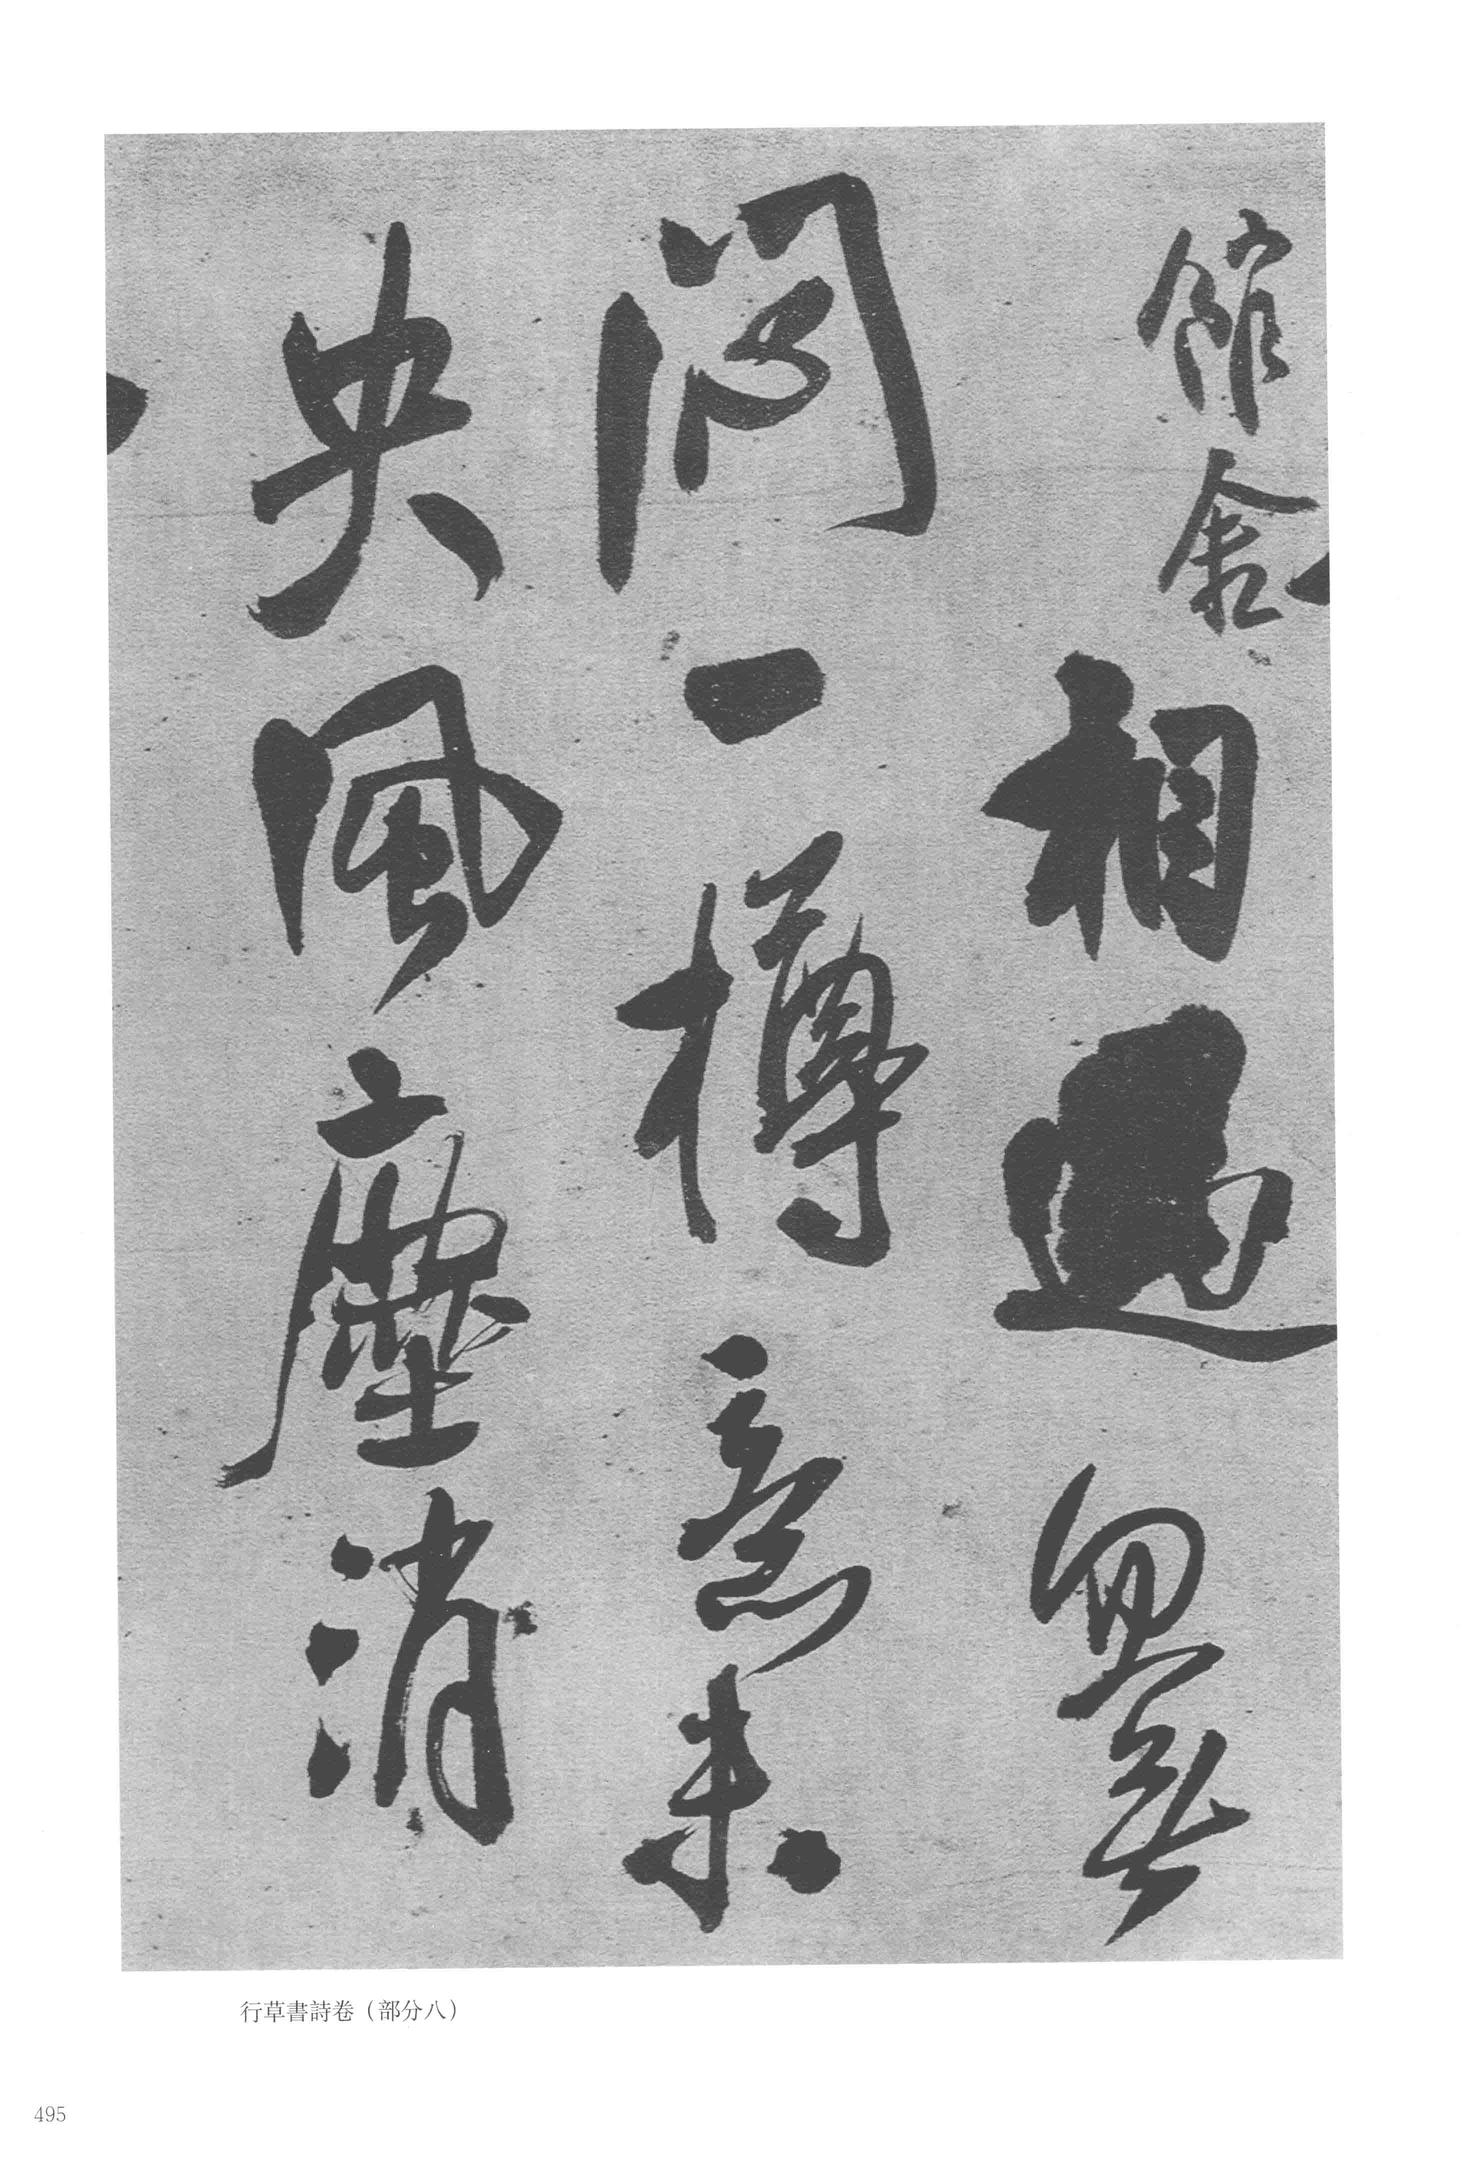 館舍
相過
悶一樽意未
央風塵消
行草書詩卷（部分八）
495